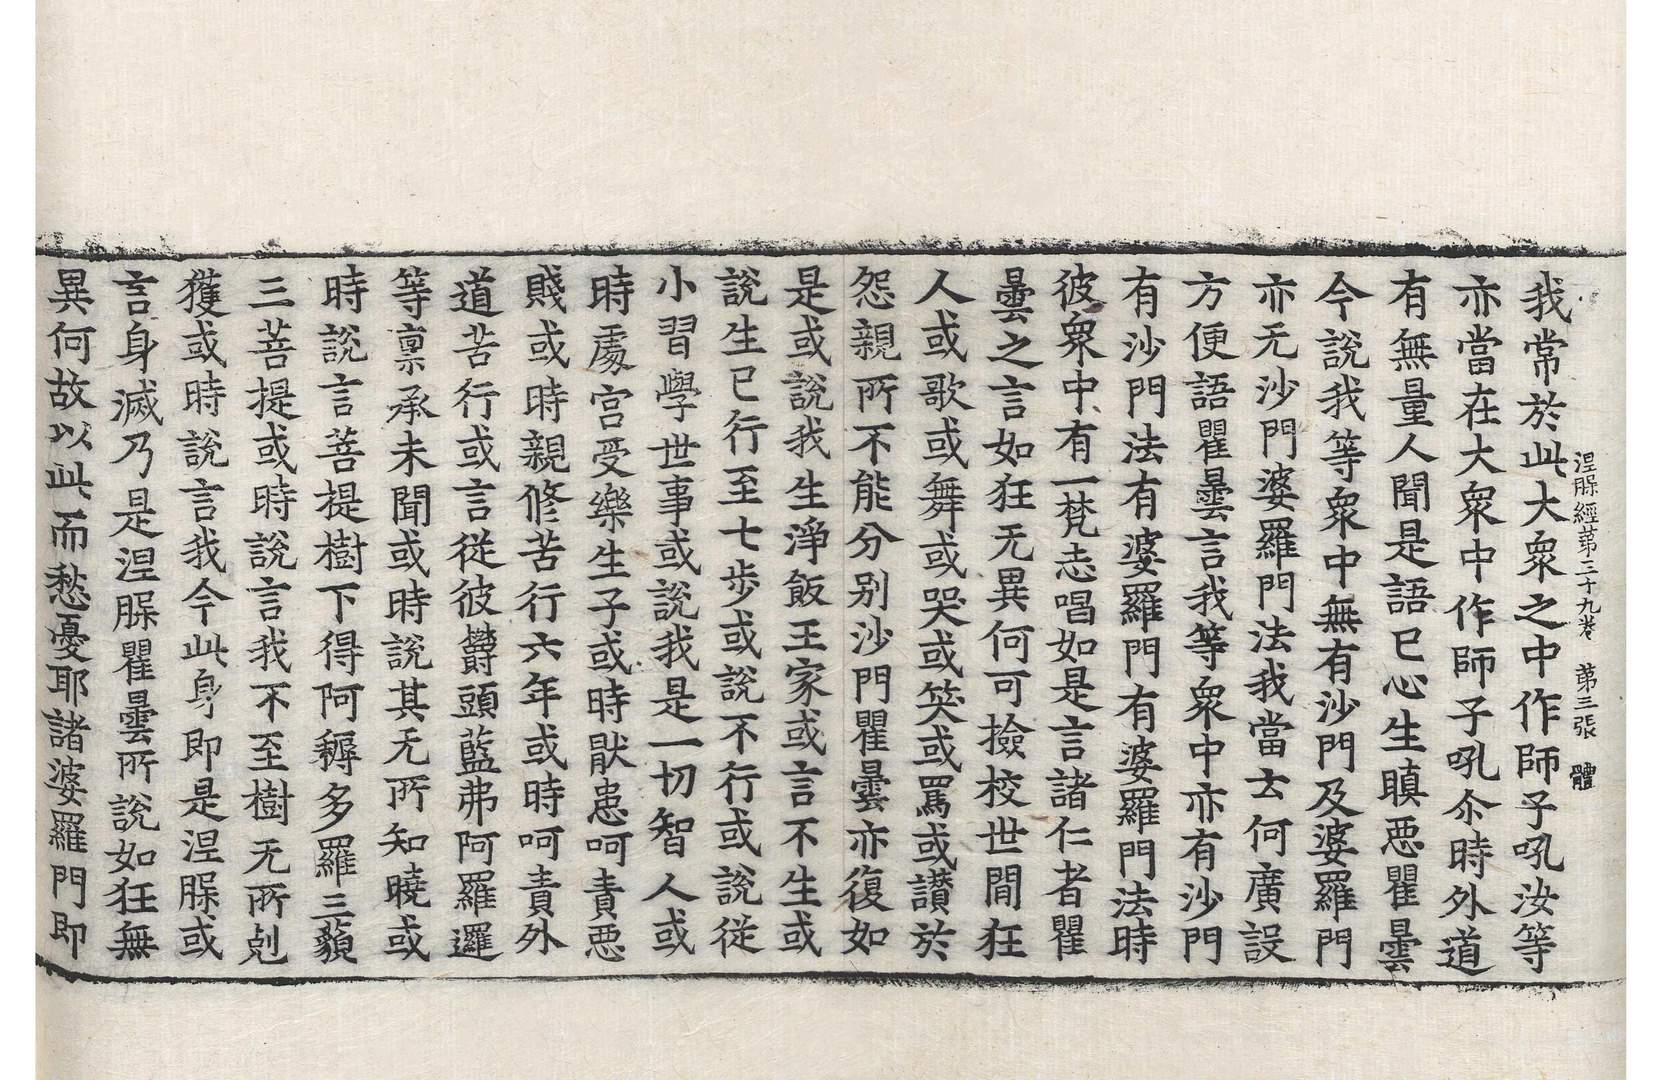 涅脲經苐三十九巻　苐三張　體
我常於此大衆之中作師子吼汝等
亦當在大衆中作師子吼尒時外道
有無量人聞是語已心生瞋惡瞿曇
今說我等衆中無有沙門及婆羅門
亦无沙門婆羅門法我當云何廣設
方便語瞿曇言我等衆中亦有沙門
有沙門法有婆羅門有婆羅門法時
彼衆中有一梵志唱如是言諸仁者瞿
曇之言如狂无異何可撿校世間狂
人或歌或舞或哭或笑或罵或讃於
怨親所不能分别沙門瞿曇亦復如
是或說我生淨飯王家或言不生或
說生已行至七步或說不行或說從
小習學世事或說我是一切智人或
時處宫受樂生子或時猒患呵責惡
賤或時親修苦行六年或時呵責外
道苦行或言從彼欝頭藍弗阿羅邏
等禀承未聞或時說其无所知曉或
時說言菩提樹下得阿耨多羅三藐
三菩提或時說言我不至樹无所剋
獲或時說言我今此身即是涅脲或
言身滅乃是涅脲瞿曇所說如狂無
異何故以此而愁憂耶諸婆羅門即